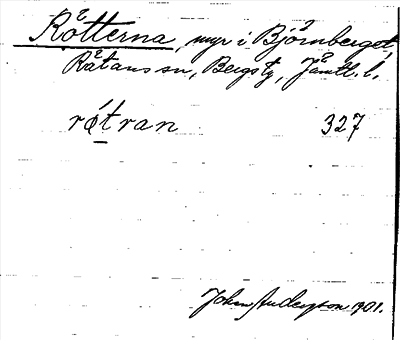 Rötterna, myr i Björnberget,
Rätans sn, Bergs tg, Jämtl. l.
rǿt ran 327
John Anderzson 1901.